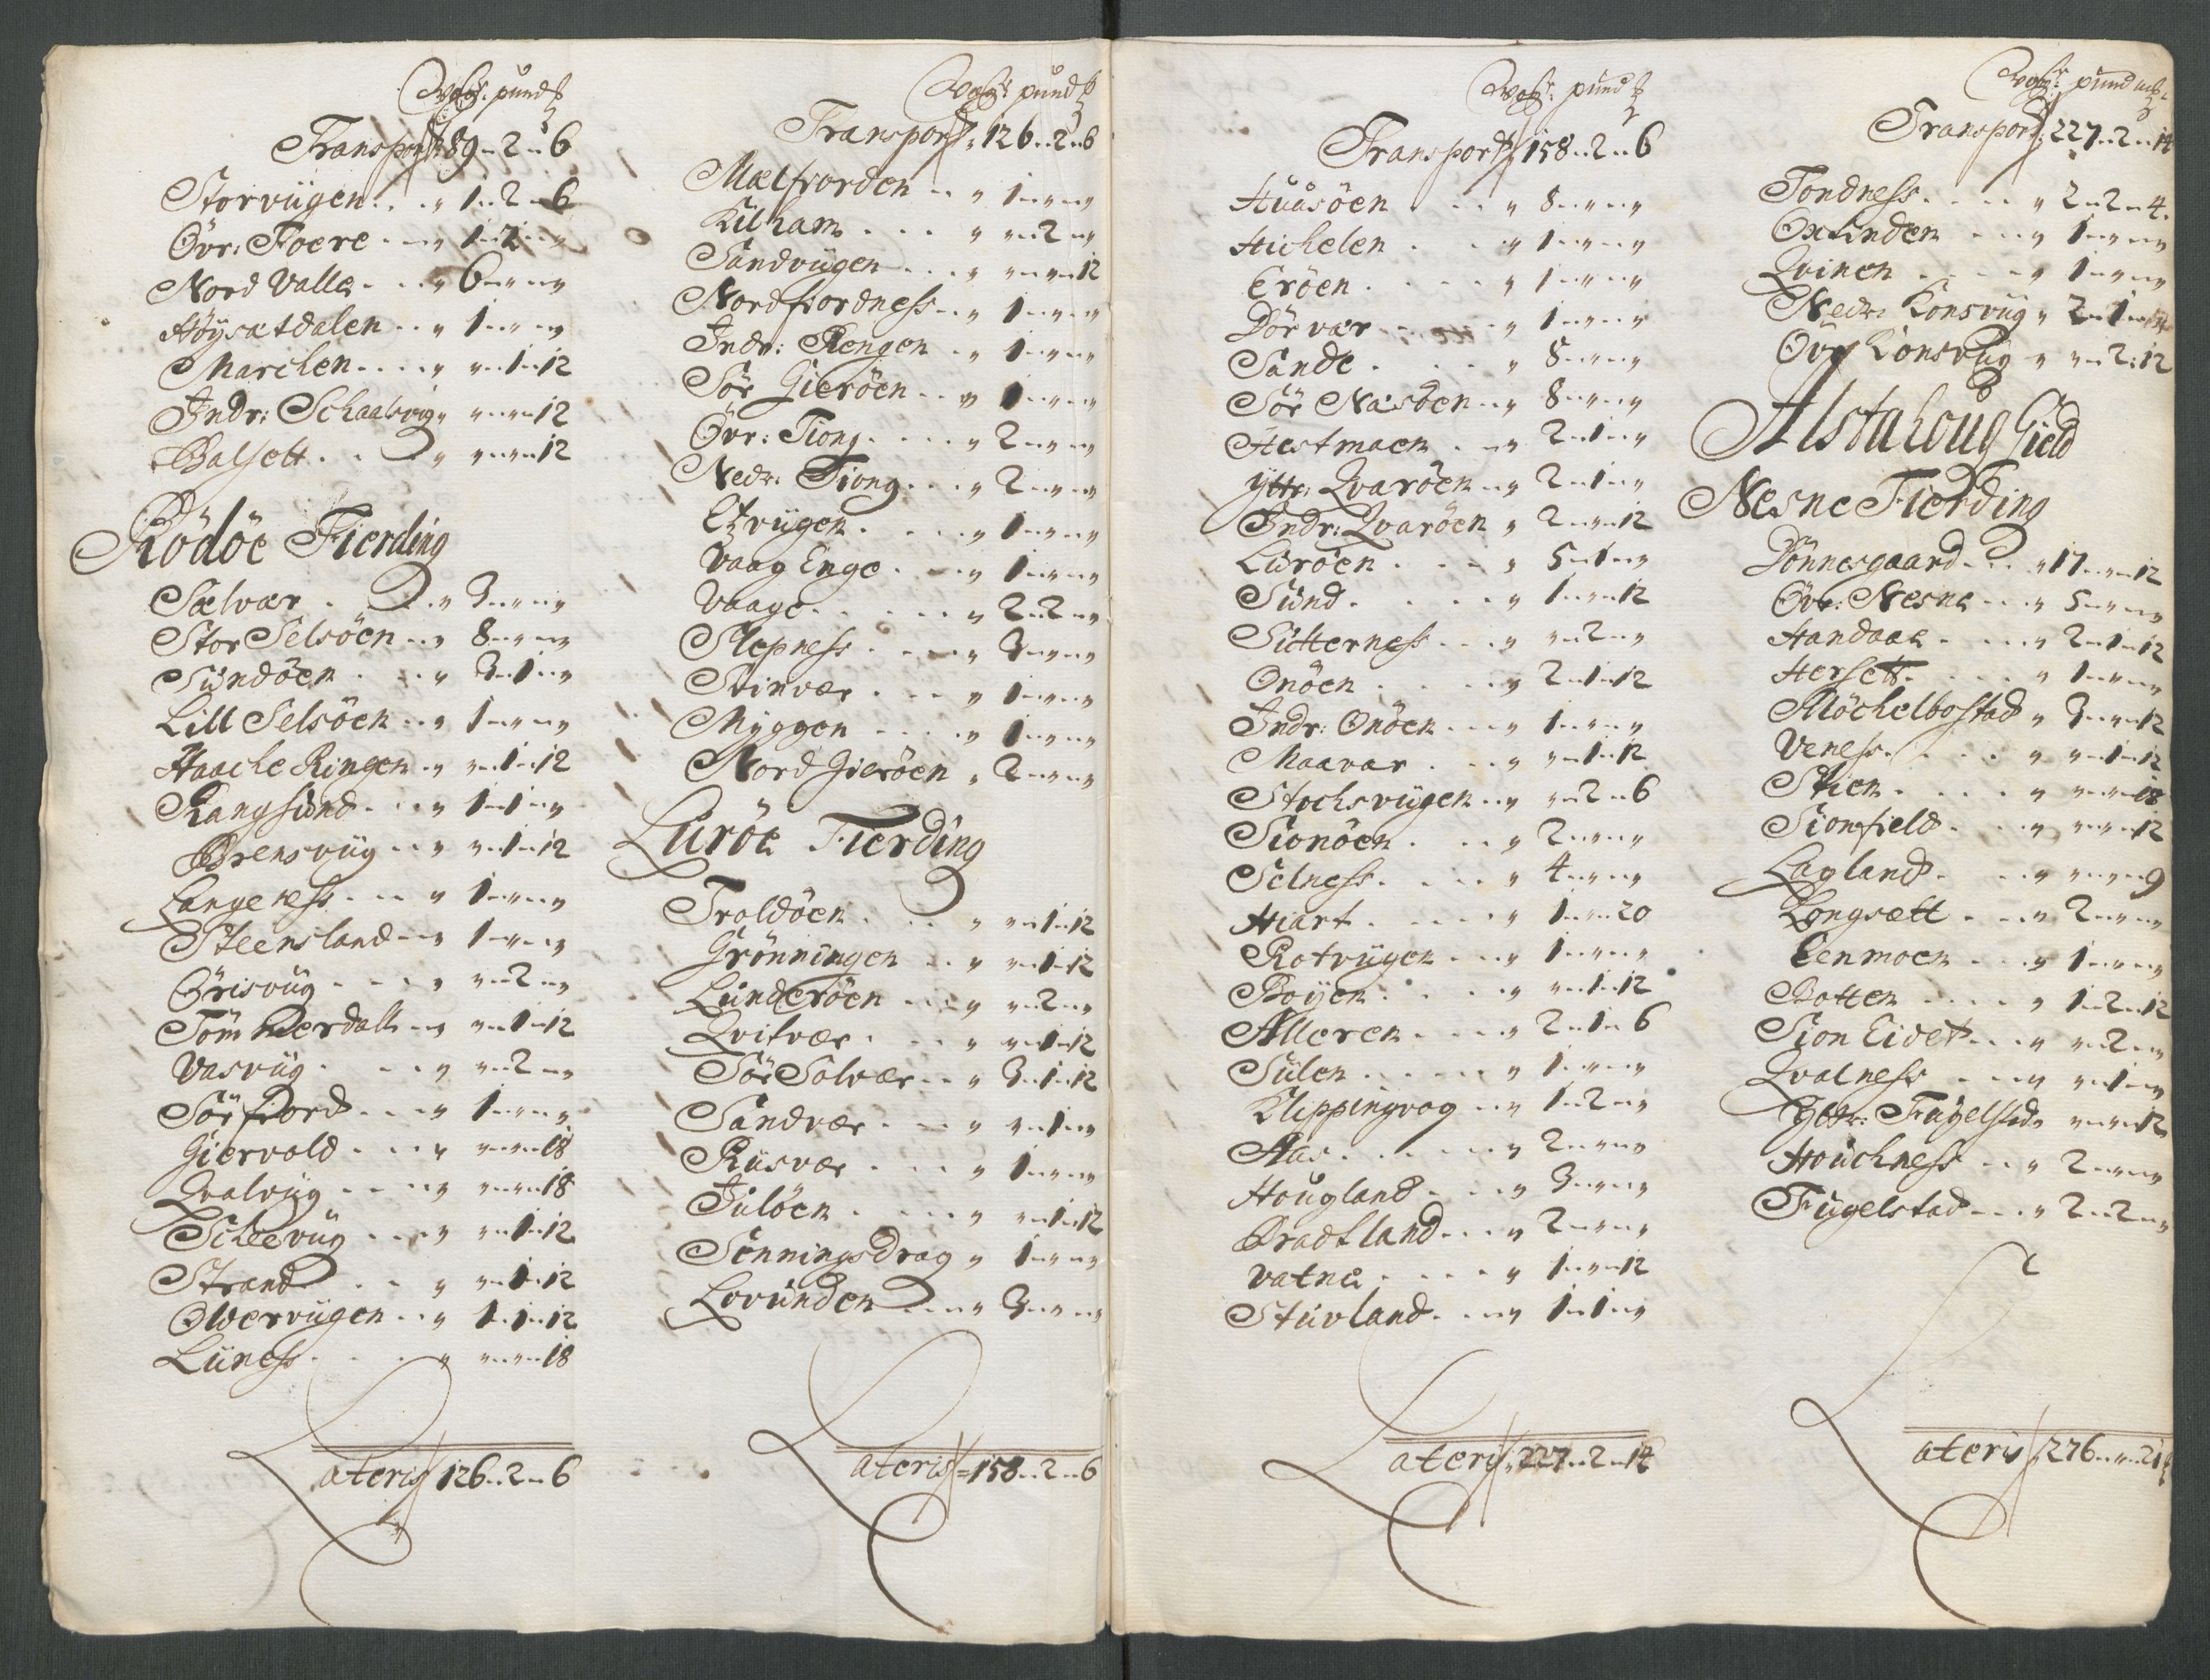 Wogr: pund ℔
Transport 89 – 2 – 6
Storviigen . . . „ 1 – 2 – 6
Övr: Foere . . . „ 1 – 2 – „
Nord Valla . . . „ 6 – „ – „
Höysætdalen . . „ 1 – „ – „
Marchen . . . . „ „ – 1 – 12
Indr: Schaalsvig „ „ – „ – 12
Balsett . . . „ „ – „ – 12
Rödöe Fierding
Sælvær . . . . „ 3 – „ – „
Stor Selsöen . . „ 8 – „ – „
Sundöen . . . „ 3 – 1 – „
Lill Selsöen . . „ 1 – „ – „
Haache Ringen . „ „ – 1 – 12
Rangsund . . . „ 1 – 1 – „
Brensviig . . „ „ – 1 – 12
Langeness . . . „ 1 – „ – „
Steensland . . „ 1 – „ – „
Grisvüg . . . . „ „ – 2 – „
Tömmerdall . . „ „ – 1 – 12
Vasviig . . . . „ „ – 2 – „
Sörfiord . . . . „ 1 – „ – „
Giervold . . . . „ „ – „ – 18
Qvalviig . . . . „ „ – „ – 18
Scheeviig . . . . „ „ – 1 – 12
Strand . . . „ „ – 1 – 12
Olderviigen . . „ 1 – 1 – 12
Liiness . . . . „ „ – „ – 18
Lateris 126 – 2 – 6
Wogr: pund ℔
Transport „ 126 – 2 – 6
Mælfiorden . . „ 1 – „ – „
Kilham . . . . „ „ – 2 – „
Sandviigen . . . „ „ – „ – 12
Nordfiordness . . „ 1 – „ – „
Indr: Rengen . . „ 1 – „ – „
Sör Gieröen . . „ 1 – „ – „
Övr: Tiong . . . . „ 2 – „ – „
Nedr: Tiong . . . „ 2 – „ – „
Etzviigen . . . . „ 1 – „ – „
Vaag Enge . . . „ 1 – „ – „
Vaage . . . . . „ 2 – 2 – „
Slepness . . . . „ 3 – „ – „
Svinvær . . . . „ 1 – „ – „
Myggen . . . . „ 1 – „ – „
Nord Gieröen „ 2 – „ – „
Luröe Fierding
Troldöen . . . „ „ – 1 – 12
Grönningen . . „ „ – 1 – 12
Lunderöen . . . „ „ – 2 – „
Qvitvær . . . . „ „ – 1 – 12
Sör Solvær . . „ 3 – 1 – 12
Sandvær . . . „ „ – 1 – „
Rusvær . . . . „ 1 – „ – „
Juløen . . . . „ „ – 1 – 12
Senningsdrag „ 1 – „ – „
Lovunden . . . „ 3 – „ – „
Lateris = 158 – 2 – 6
Wogr: pund ℔
Transport „ 158 – 2 – 6
Huusöen . . . „ 8 – „ – „
Hichelen . . . „ 1 – „ – „
Eröen . . . . . „ 1 – „ – „
Dörvær . . . . „ 1 – „ – „
Sande . . . . „ 8 – „ – „
Sör Næsöen . . „ 8 – „ – „
Hestmaen . . „ 2 – 1 – „
Yttr: Qvaröen . . „ 2 – 1 – „
Indr: Qvaröen „ 2 – „ – 12
Luröen . . . . „ 5 – 1 – „
Sund . . . . . „ 1 – „ – 12
Sitterness . . . „ „ – 2 – „
Onöen . . . . „ 2 – 1 – 12
Indr: Onöen . . . „ 1 – „ – „
Maavær . . . „ „ – 1 – 12
Stochsviigen . . „ „ – 2 – 6
Sionöen . . . „ 2 – „ – „
Selness . . . . „ 4 – „ – „
Hiart . . . . . „ 1 – „ – 20
Rotviigen . . . „ 1 – „ – „
Boÿen . . . . „ „ – 1 – 12
Alleren . . . . „ 2 – 1 – 6
Sülen . . . . . „ 1 – „ – „
Klippingvog . . „ 1 – 2 – „
Aas . . . . . „ 2 – „ – „
Hougland . . . „ 3 – „ – „
Bradtland . . . „ 2 – „ – „
Vatne . . . . „ 1 – „ – 12
Stuvland . . . „ 1 – 1 – „
Lateris „ 227 – 2 – 14
Wogr: pund
Transport „ 227 – 2 – 14
Tondness . . . . „ 2 – 2 – 4
Oxtinden . . . „ 1 – „ – „
Qvinen . . . . „ 1 – „ – „
Nedr: Konsviig „ 2 – 1 –
Övr Konsviig „ „ – 2 : 12
Alstahoug Gield
Nesne Fierding
Dönnesgaard . . . „ 17 – „ – 12
Övr: Nesna . . . „ 5 – „ – „
Handaae . . . . „ 2 – 1 – 12
Hersett . . . . „ 1 – „ – „
Möchelbostad „ 3 – „ – 12
Veness . . . . „ „ – 1 – 12
Stien . . . . . „ „ – „ – 18
Sionfield . . . „ „ – „ – 12
Lagland . . . „ „ – „ – 9
Longsætt . . . „ 2 – „ – „
Eenmoen . . . „ 1 – „ – „
Botten . . . . „ 1 – 2 – 12
Sion Eidet . . . „ „ – 2 – „
Qvalness . . . „ „ – 1 – „
Yttr: Fugelstad „ „ – „ – 12
Houchness . . „ 2 – „ – „
Fugelstad . . . „ 2 – 2 – „
Lateris „ 276 – „ – 21